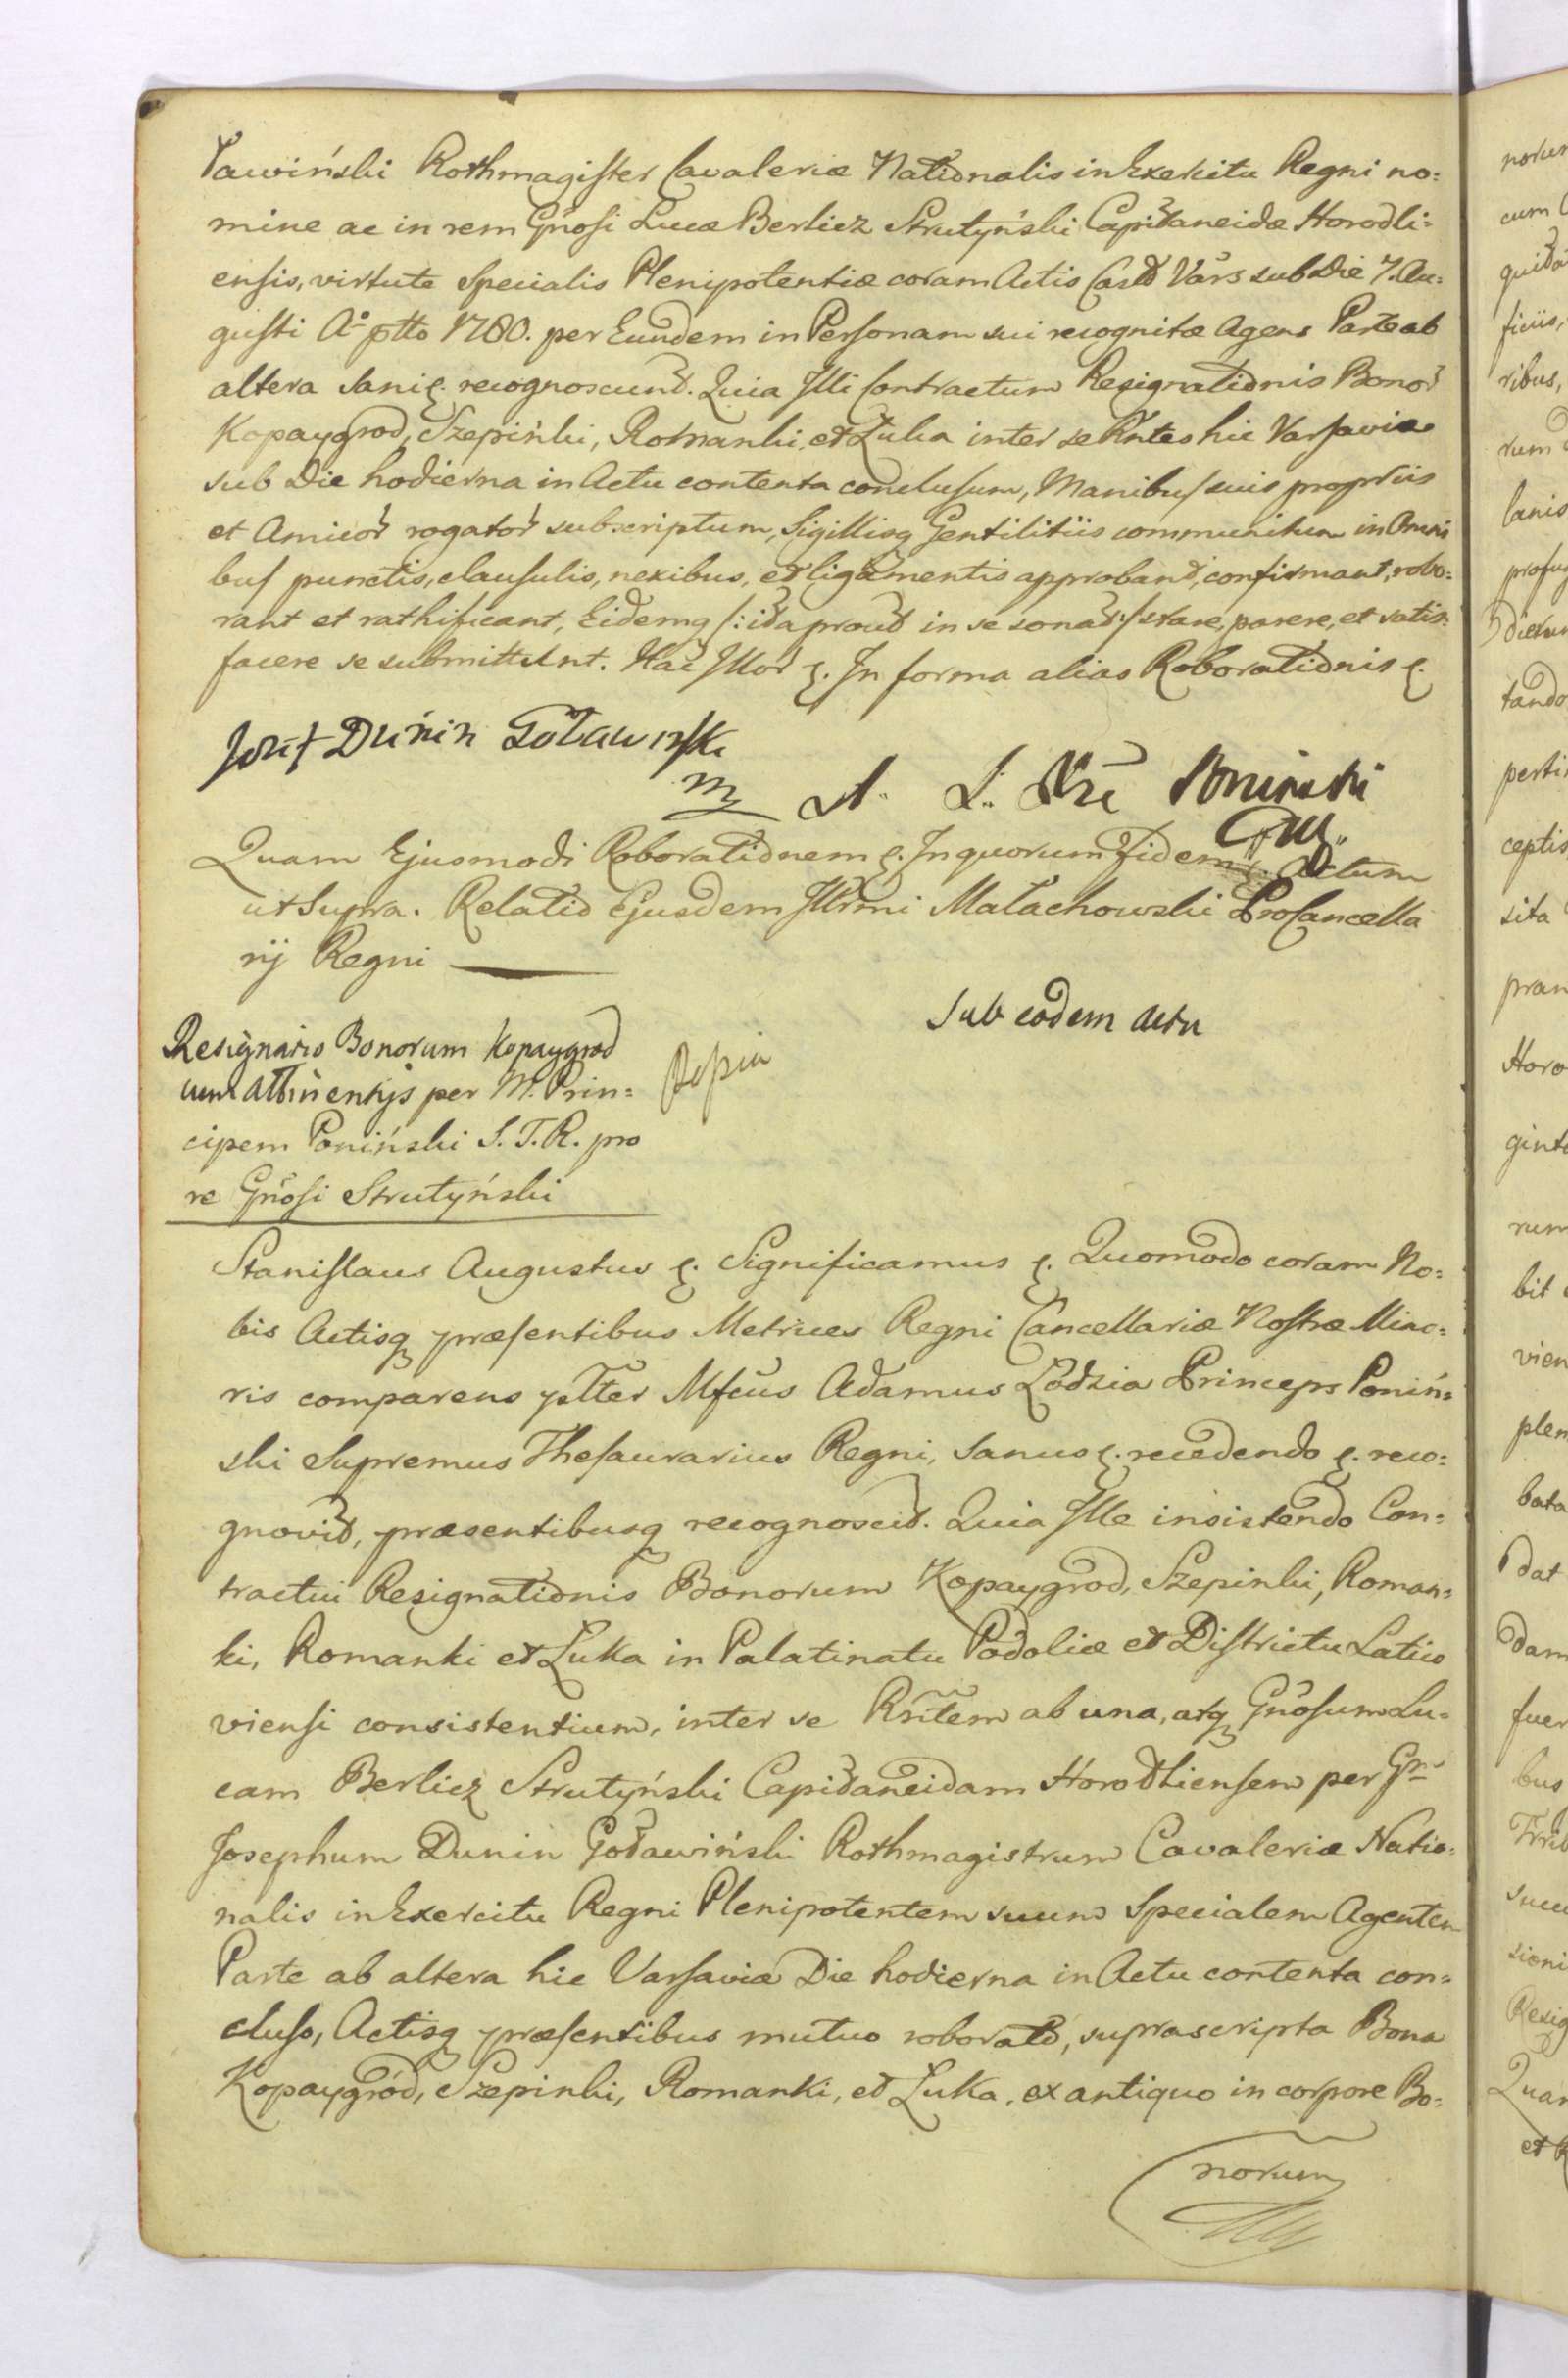 ławiński Rothmagister Cavaleriæ Nationalis in Exercitu Regni no=
mine ac in rem Gnosi Lucæ Berlicz Strutyński Capitaneidæ Horodli=
ensis, virtute Specialis Plenipotentiæ coram Actis Vars sub Die 7. Au=
gusti Ao ptto 1780. per Eundem in Personam sui recognitæ Agens Parte ab
altera Sani etc. recognoscunt. Quia Illi Contractum Resignationis Bonor
Kopaygrod, Szepinki, Romanki, et Łuka inter se Rntes hic Varsaviæ
sub Die hodierna in Actu contenta conclusum, Manibus suis propriis
et Amicor rogator subscriptum, Sigillisq Gentilitiis communitum in Omni
bus punctis, clausulis, nexibus, et ligamentis approbant, confirmant, robo=
rant et rathificant, Eidemq /: ita prout in se sonat :/ stare, parere, et satis=
facere se submittunt. Hac Illor etc. In forma alias Roborationis etc.
Józef Dunin Goławiński
mp A. Ł. Xże Poniński
Quam Ejusmodi Roborationem etc. In quorum Fidem etc. Actum
ut Supra. Relatio Ejusdem Illrmi Małachowski ProCancella
rij Regni
Sub eodem Actu
Resignatio Bonorum Kopaygrod
cum Attinentijs per M. Prin=
cipem Poniński S. T. R. pro
re Gnosi Strutyński
Stanislaus Augustus etc. Significamus etc. Quomodo coram No=
bis Actisq præsentibus Metrices Regni Cancellariæ Nostræ Mino=
ris comparens psltter Mfcus Adamus Łodzia Princeps Poniń=
ski Supremus Thesaurarius Regni, Sanus etc. recedendo etc. reco=
gnovit, præsentibusq recognoscit. Quia Ille insistendo Con=
tractui Resignationis Bonorum Kopaygrod, Szepinki, Roman=
ki, Romanki et Łuka in Palatinatu Podoliæ et Districtu Latico
viensi consistentium, inter se Rntem ab una, atq Gnosum Lu=
cam Berlicz Strutyński Capitaneidam Horodliensem per Gm
Josephum Dunin Goławiński Rothmagistrum Cavaleriæ Natio=
nalis in Exercitu Regni Plenipotentem suum Specialem Agentem
Parte ab altera hic Varsaviæ Die hodierna in Actu contenta con=
cluso, Actisq præsentibus mutuo roborato, suprascripta Bona
Kopaygród, Szepinki, Romanki, et Łuka, ex antiquo in corpore Bo=
norum